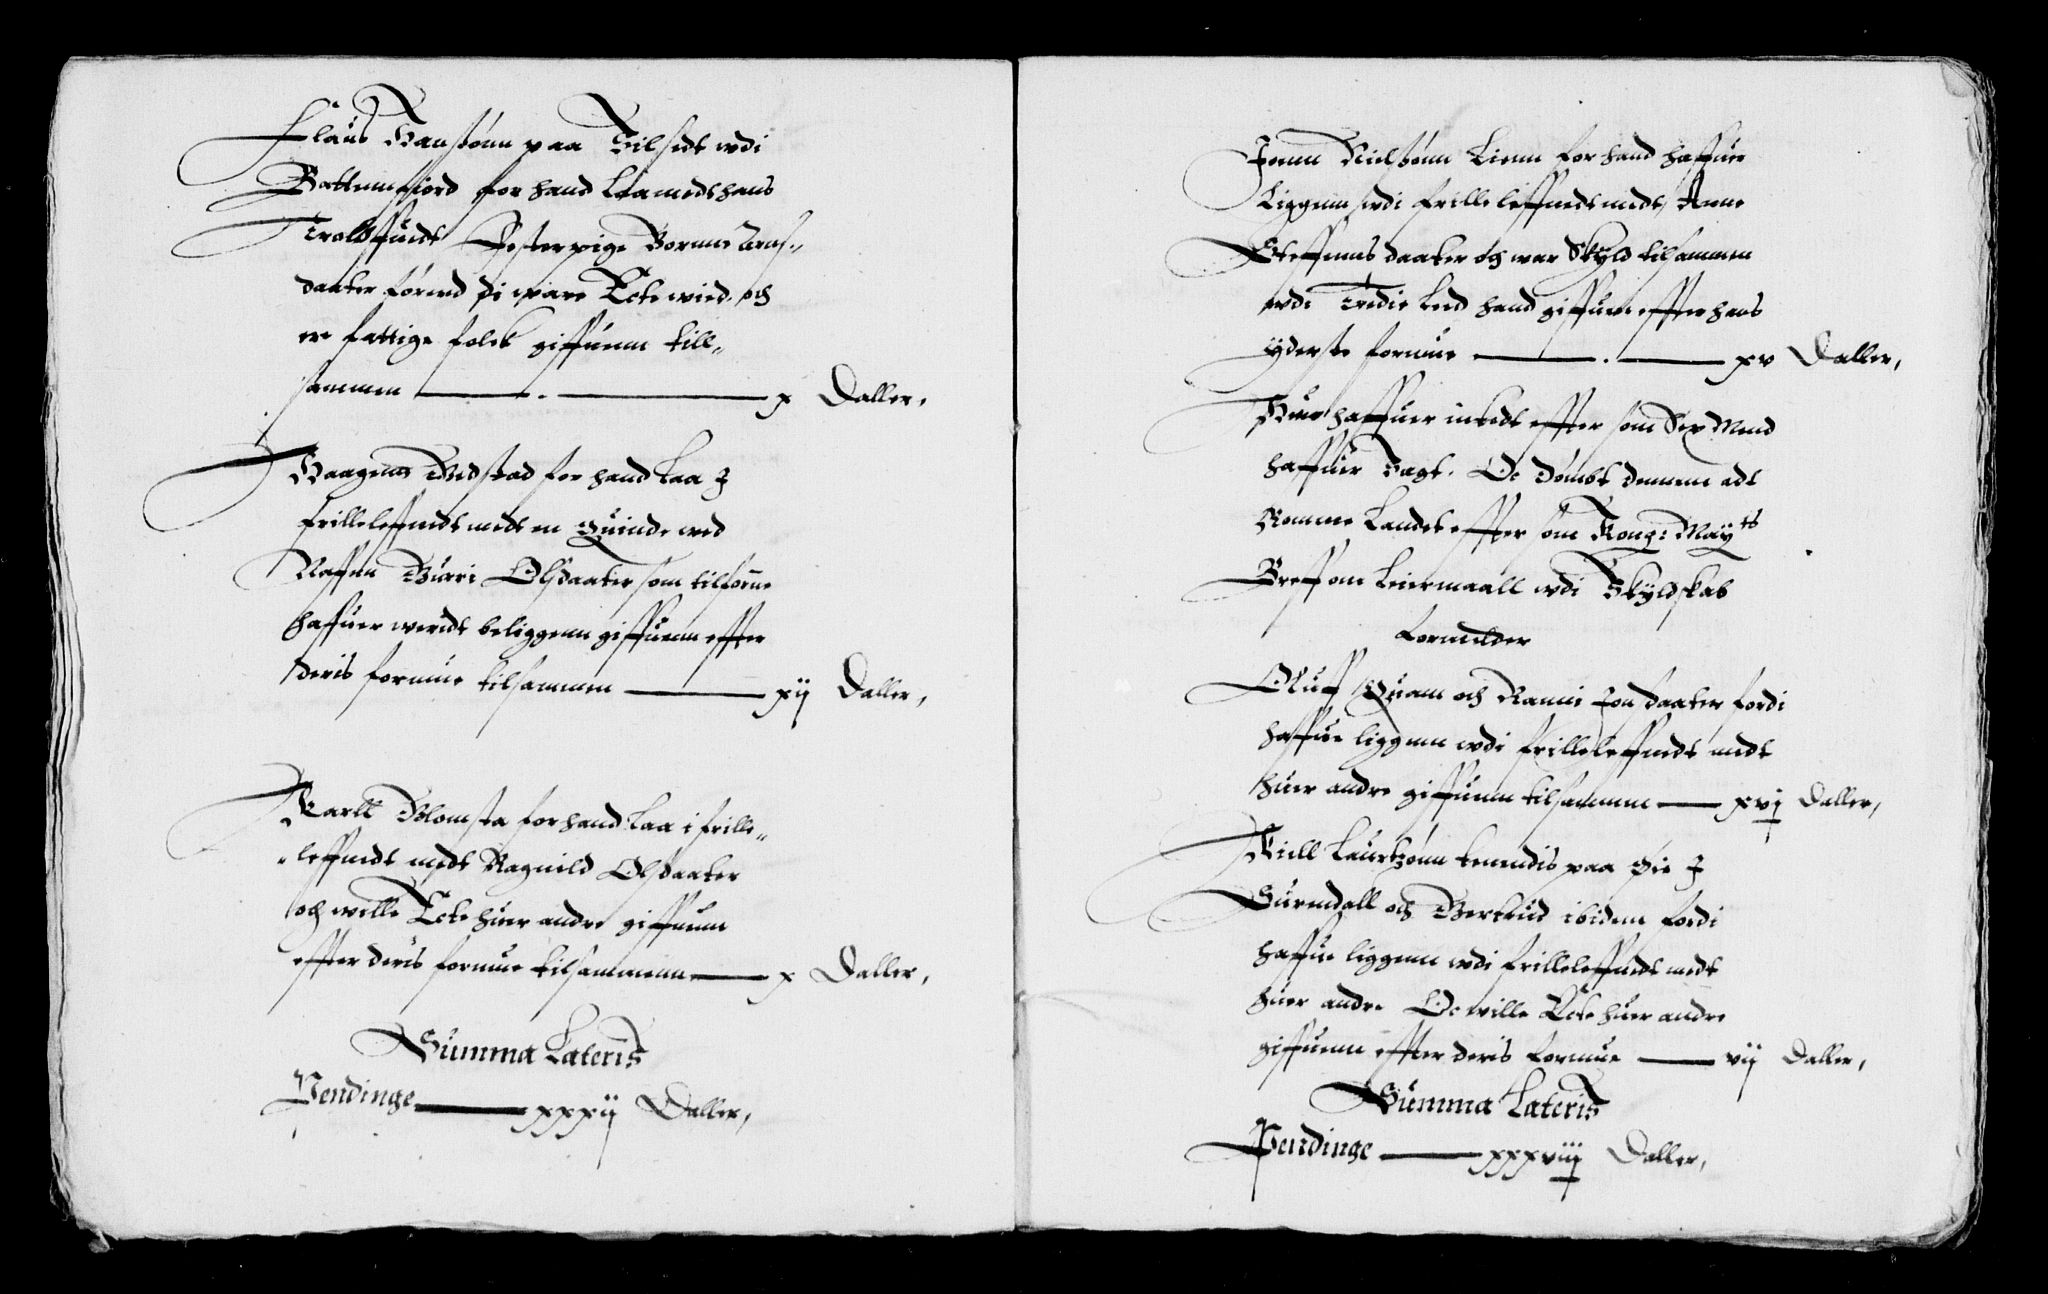 Claus Hansønn paa Tilset wdi
Battennfiord for hand laa medt hans
Trolofuidt Festerpige Bornne Arns„
daater førend di ware Ecte wied, och
ere fattige folck giffuenn till„
sammen — . — x Daller,
Haagenn Wedstad for hand laa J
frilleleffnedt medt en Quinde wed
Naffnn Gurri Olsdaater som tilforne
haffuer weridt beliggenn giffuenn effter
deris formue tilsammen — xij Daller,
Karll Blomsta for hand laa i frille„
„leffnedt medt Ragnild Olsdaater
och wille Ecte huer andre giffuenn
effter deris formue tilsammenn — x Daller,
Summa Lateris
Pendinge — xxxij Daller,
Jonn Nielsønn Lienn for hand haffuer
Liggenn wdi frilleleffnedt medt Anne
Steffenns daater och war Skyld tilsammen
wdi Tredie Led hand giffuen effter hans
yderste formue — . — xv Daller,
Hun haffuer inttedt effter som Sex Mend
haffuer Sagt. Oc dømbt dennem adt
Rømme Landet effter som Kong: Mayts
Breff om Leiermaall wdi Skyldskab
formelder
Oluff Quam och Ranni Jonsdaater fordi
haffue liggenn wdi frilleleffnedt medt
huer andre giffuenn tilsammen — xvj Daller,
Kield Lauritzønn tienendis paa Øie J
Surendall och Berettud ibidem fordi
haffue liggenn wdi frilleleffnedt medt
huer andre Oc wille Ecte huer andre
giffuenn effter deris formue — vij Daller,
Summa Lateris
Pendinge — xxxviij Daller,